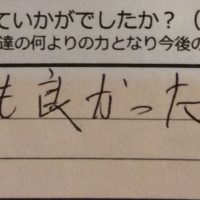 ていかがでしたか?(
達の何よりの力となり今後の
も良かった